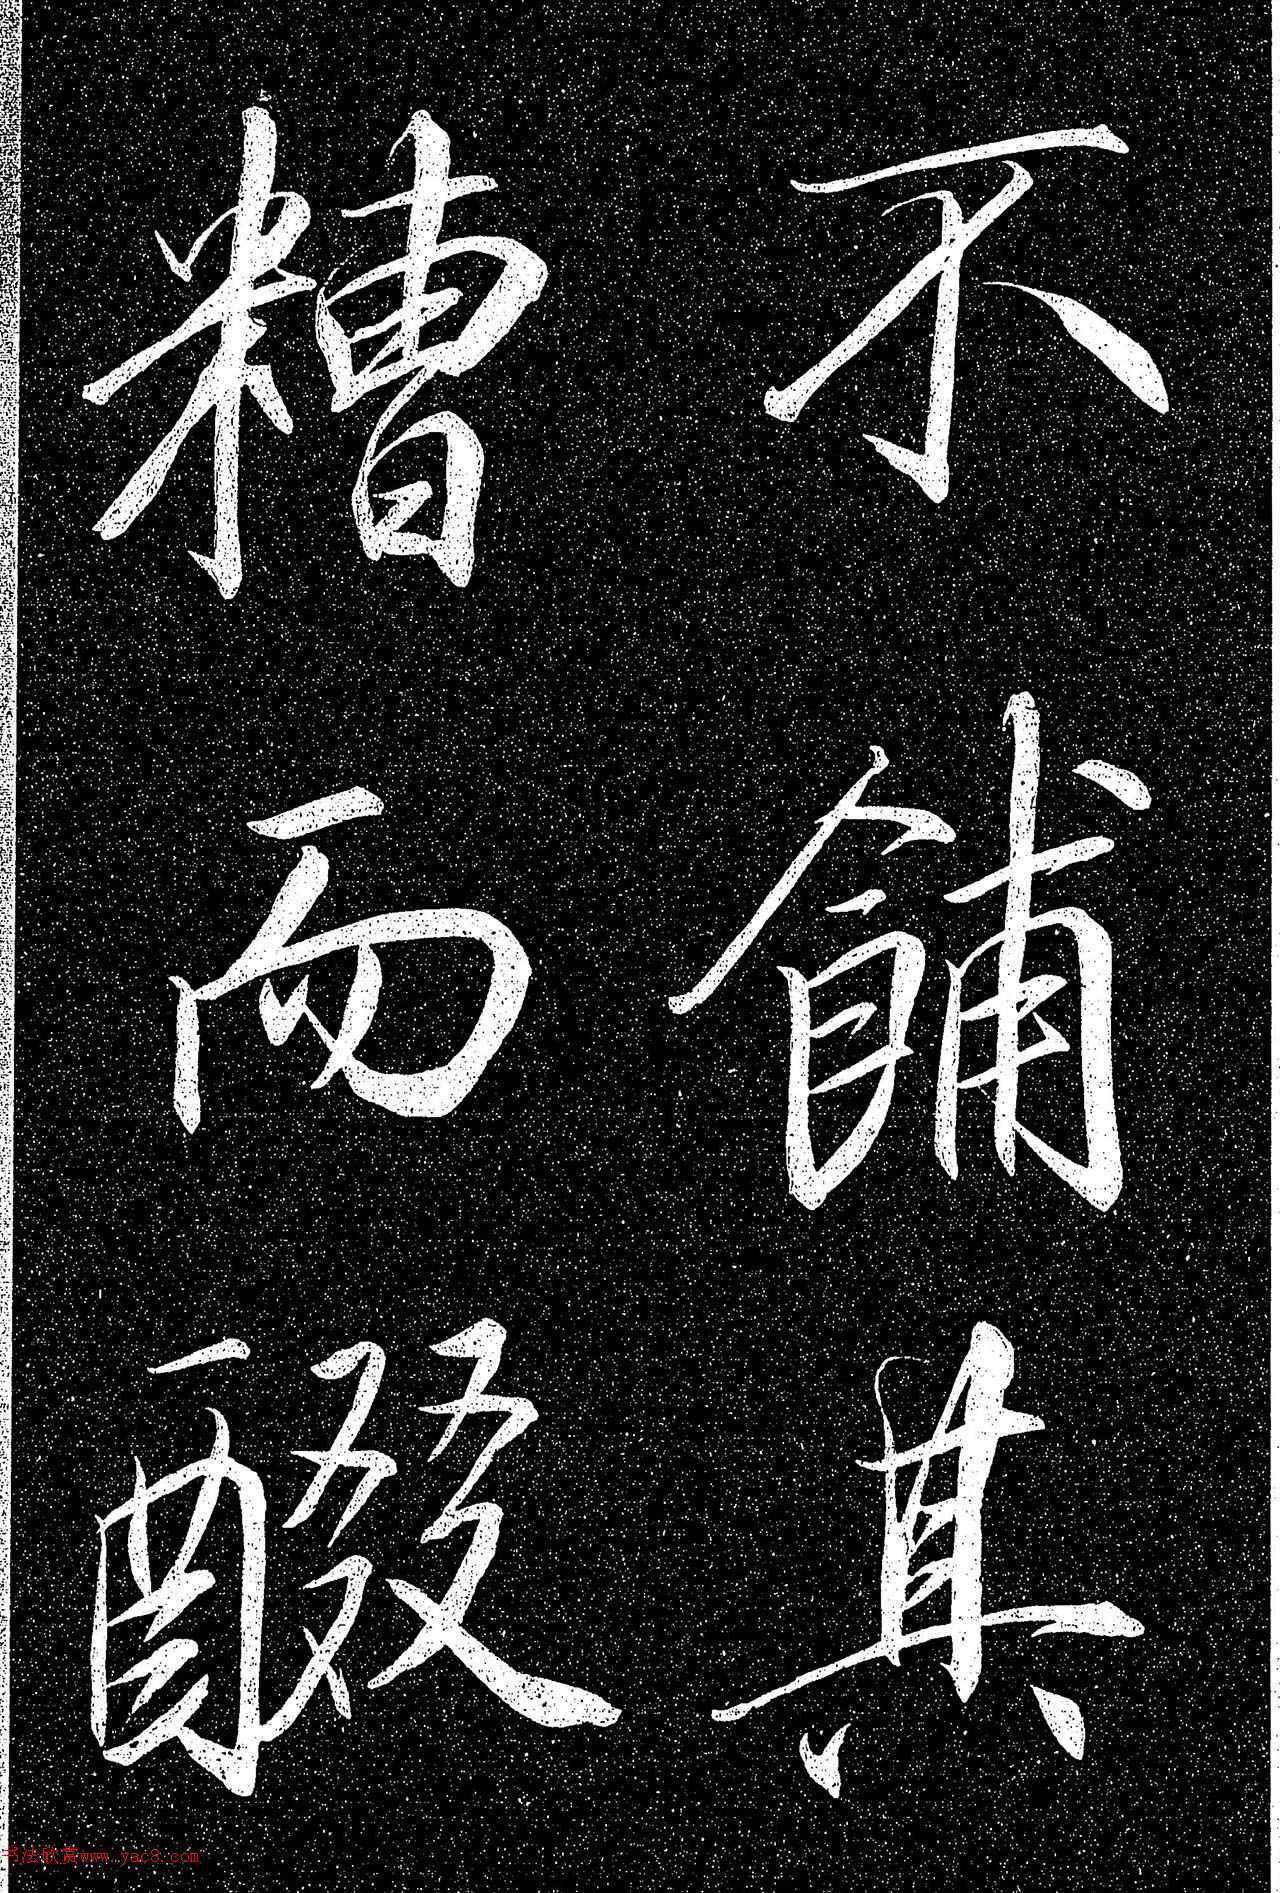 不餔其
糟而醊
书法欣赏www.yac8.com